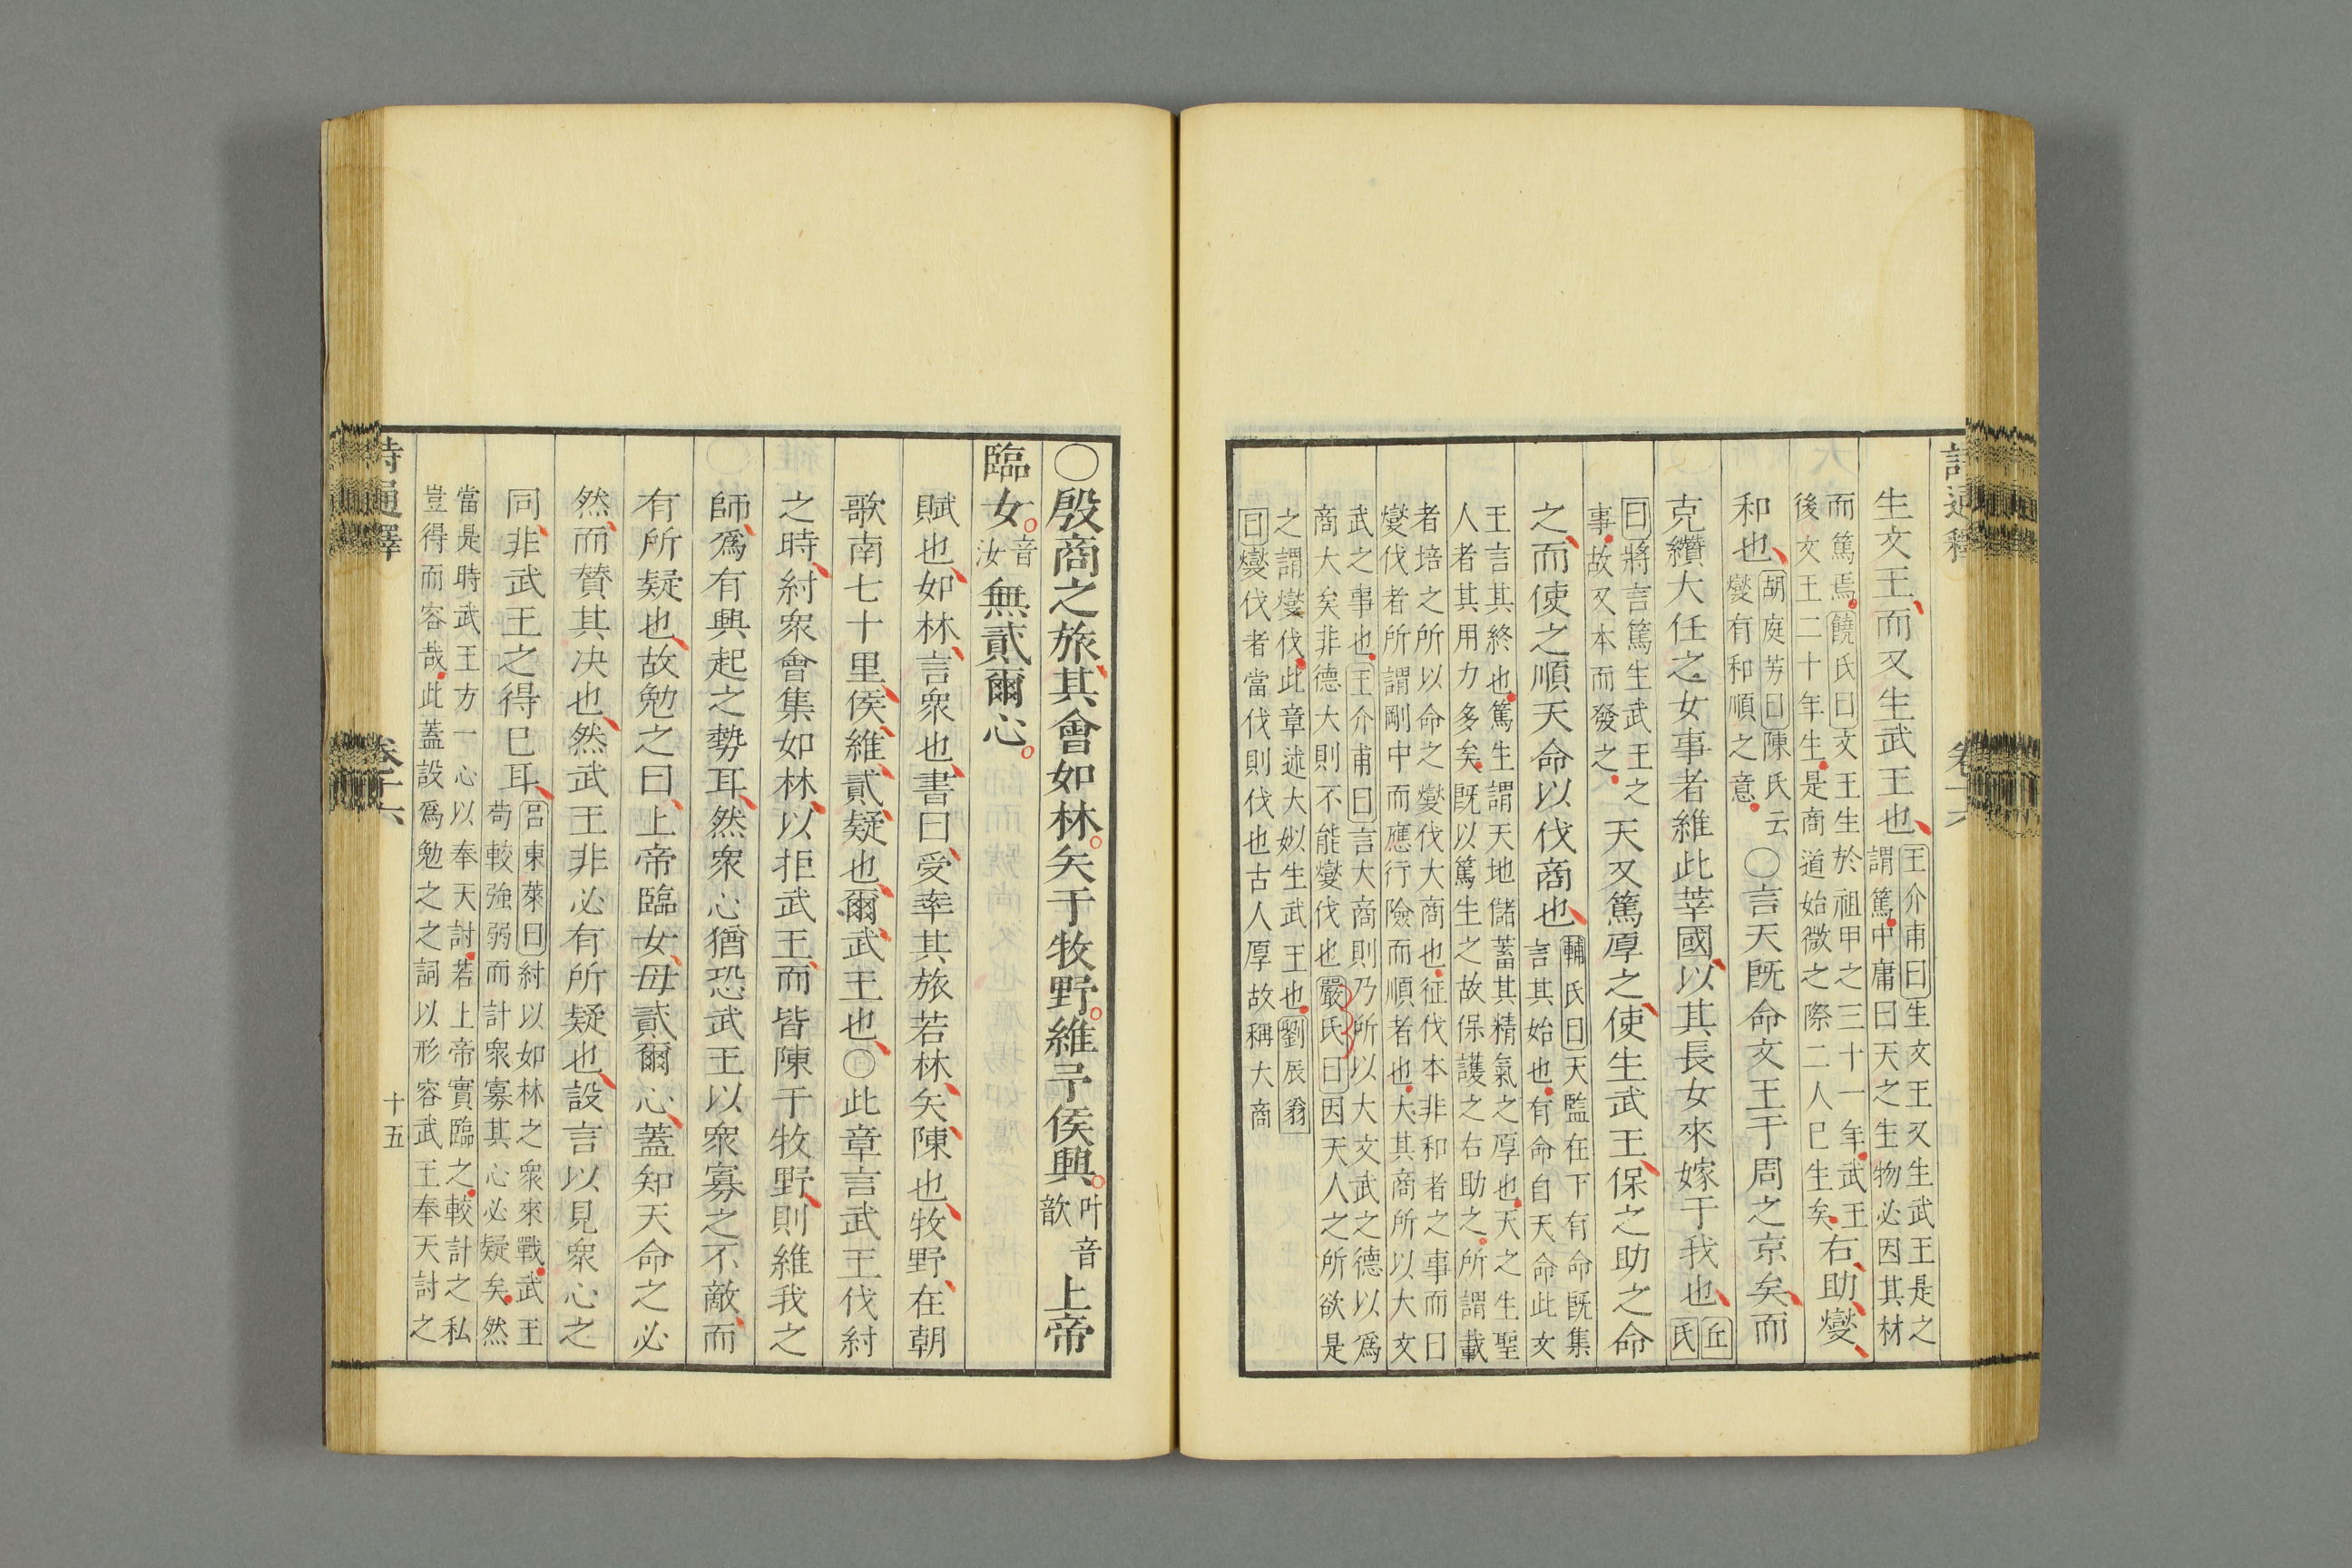 詩通釋 卷十六
生文王而又生武王也
王介甫曰生文王又生武王是之
謂篤中庸曰天之生物必因其材
而篤焉饒氏曰文王生於祖甲之三十一年武王
後文王二十年生是商道始微之際二人巳生矣
右助燮
和也
胡庭芳曰陳氏云
燮有和順之意
○言天既命文王于周之京矣而
克纘大任之女事者維此莘國以其長女來嫁于我也
丘
氏
曰將言篤生武王之
事故又本而發之
天又篤厚之使生武王保之助之命
之而使之順天命以伐商也
輔氏曰天監在下有命既集
言其始也有命自天命此文
王言其終也篤生謂天地儲蓄其精氣之厚也天之生聖
人者其用力多矣既以篤生之故保護之右助之所謂載
者培之所以命之燮伐大商也征伐本非和者之事而曰
燮伐者所謂剛中而應行險而順者也大其商所以大文
武之事也王介甫曰言大商則乃所以大文武之德以爲
商大矣非德大則不能燮伐也嚴氏曰因天人之所欲是
之謂燮伐此章述大姒生武王也劉辰翁
曰燮伐者當伐則伐也古人厚故稱大商
○殷商之旅其會如林矢于牧野維予侯興
叶音
歆
上帝
臨女
音
汝
無貳爾心
賦也如林言衆也書曰受率其旅若林矢陳也牧野在朝
歌南七十里侯維貳疑也爾武王也○此章言武王伐紂
之時紂衆會集如林以拒武王而皆陳于牧野則維我之
師爲有興起之勢耳然衆心猶恐武王以衆寡之不敵而
有所疑也故勉之曰上帝臨女毋貳爾心蓋知天命之必
然而贊其决也然武王非必有所疑也設言以見衆心之
同非武王之得巳耳
呂東萊曰紂以如林之衆來戰武王
苟較強弱而計衆寡其心必疑矣然
當是時武王方一心以奉天討若上帝實臨之較計之私
豈得而容哉此蓋設爲勉之之詞以形容武王奉天討之
詩通釋 卷十六 十五